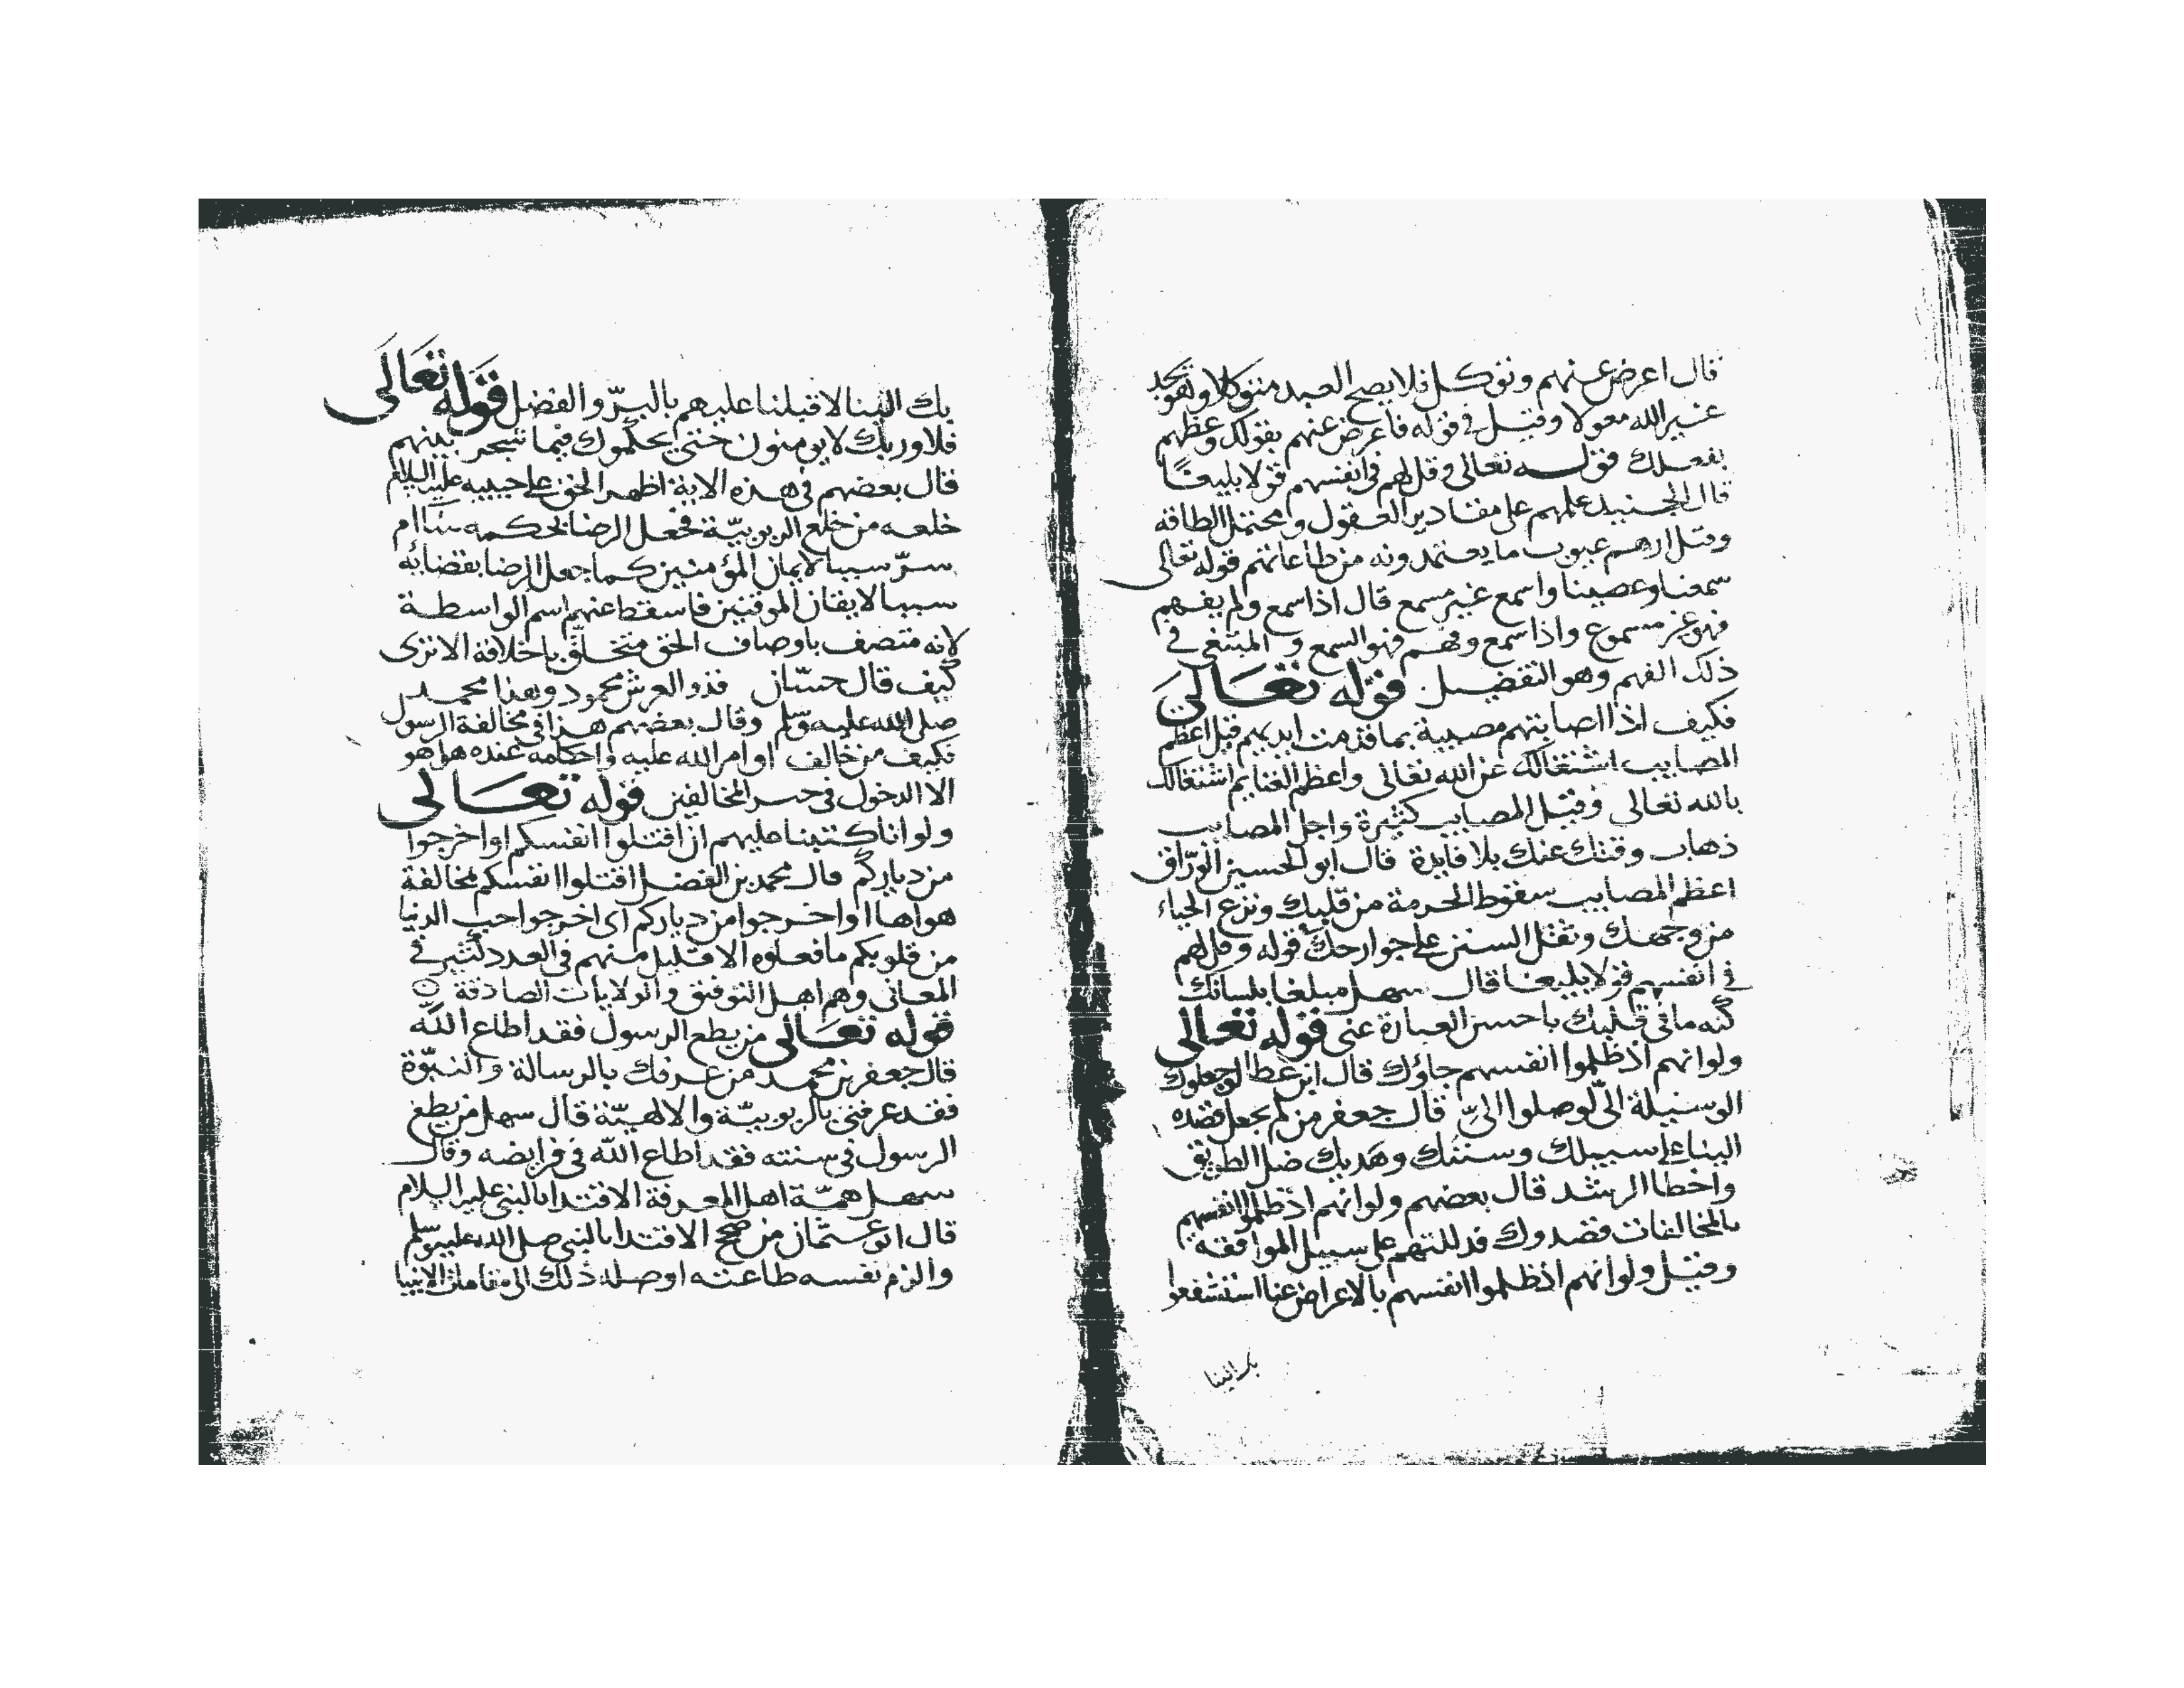 قال اعرض عنهم وتوكل فلا يصح العبد متوكلا وهو يجد
غير الله معولا وقيل في قوله فاعرض عنهم بقولك وعظهم
بفعلك قوله تعالى وقل لهم في انفسهم قولا بليغا
قال الجنيد علمهم على مقادير العقول ومحتمل الطاقة
وقيل ارهم عيوب ما يعتمدونه من طاعاتهم قوله تعالى
سمعنا وعصينا واسمع غير مسمع قال اذا سمع ولم يفهم
فهو غير مسموع واذا سمع وفهم فهو السمع و المبتغى في
ذلك الفهم وهو التفضيل قوله تعالى
فكيف اذا اصابتهم مصيبة بما قدمت ايديهم قيل اعظم
المصايب اشتغالك عن الله تعالى واعظم الغنايم اشتغالك
بالله تعالى وقيل المصايب كثيرة واجل المصايب
ذهاب وقتك عنك بلا فايدة قال ابو الحسين الورّاق
اعظم المصايب سقوط الحرمة من قلبك ونزع الحياء
من وجهك وثقل السنن على جوارحك قوله وقل لهم
في انفسهم قولا بليغا قال سهل مبلغا بلسانك
كنه ما في قلبك باحسن العبارة عنى قوله تعالى
ولو انهم اذ ظلموا انفسهم جاؤك قال ابن عطا لو جعلوك
الوسيلة الىّ لوصلوا الىّ قال جعفر من لم يجعل قصده
الينا على سبيلك وسنتك وهديك ضل الطريق
واخطا الرشد قال بعضهم ولو انهم اذ ظلموا انفسهم
بالمخالفات قصدوك فدللتهم على سبيل الموافقة
وقيل ولو انهم اذ ظلموا انفسهم بالاعراض عنا استشفعوا
بك الينا
بك الينا لاقبلنا عليهم بالبرّ والفضل قوله تعالى
فلا وربك لا يومنون حتى يحكّموك فيما شجر بينهم
قال بعضهم في هذه الاية اظهر الحق على حبيبه عليه السلام
خلعه من خلع الربوبيّة فجعل الرضا بحكمه ساام
سرّ سببا لايمان المؤمنين كما جعل الرضا بقضائه
سببا لايقان الموقنين فاسقط عنهم اسم الواسطة
لانه متصف باوصاف الحق متخلّق باخلاقه الا ترى
كيف قال حسّان فذو العرش محمود وهذا محمد
صلى الله عليه وسلم وقال بعضهم هذا في مخالفة الرسول
فكيف من خالف اوامر الله عليه واحكامه عنده هل هو
الا الدخول في المخالفين قوله تعالى
ولو انا كتبنا عليهم ان اقتلوا انفسكم او اخرجوا
من دياركم قال محمد بن الفضل اقتلوا انفسكم بمخالفة
هواها او اخرجوا من دياركم اى اخرجوا حب الدنيا
من قلوبكم ما فعلوه الا قليل منهم في العدد كثير في
المعانى وهم اهل التوفيق والولايات الصادقة
قوله تعالى من يطع الرسول فقد اطاع الله
قال جعفر بن محمد من عرفك بالرسالة والنبوّة
فقد عرفني بالربوبيّة والالهيّة قال سهل من يطع
الرسول في سنته فقد اطاع الله في فرايضه وقال
سهل همّة اهل المعرفة الاقتدا بالنبى عليه السلام
قال ابو عثمان من صحح الاقتدا بالنبى صلى الله عليه وسلم
والزم نفسه طاعته اوصله ذلك الى مقامات الانبيا